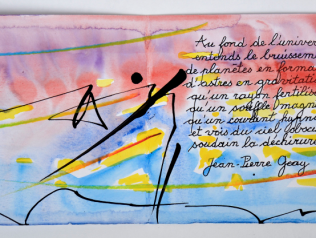 Au fond de l'univers
entends le bruissement
de planètes en formation
d'astres en gravitation
qu'un rayon fertilise
qu'un souffle magné
qu'un courant
et vois du ciel
soudain la déchirure
Jean-Pierre Geay